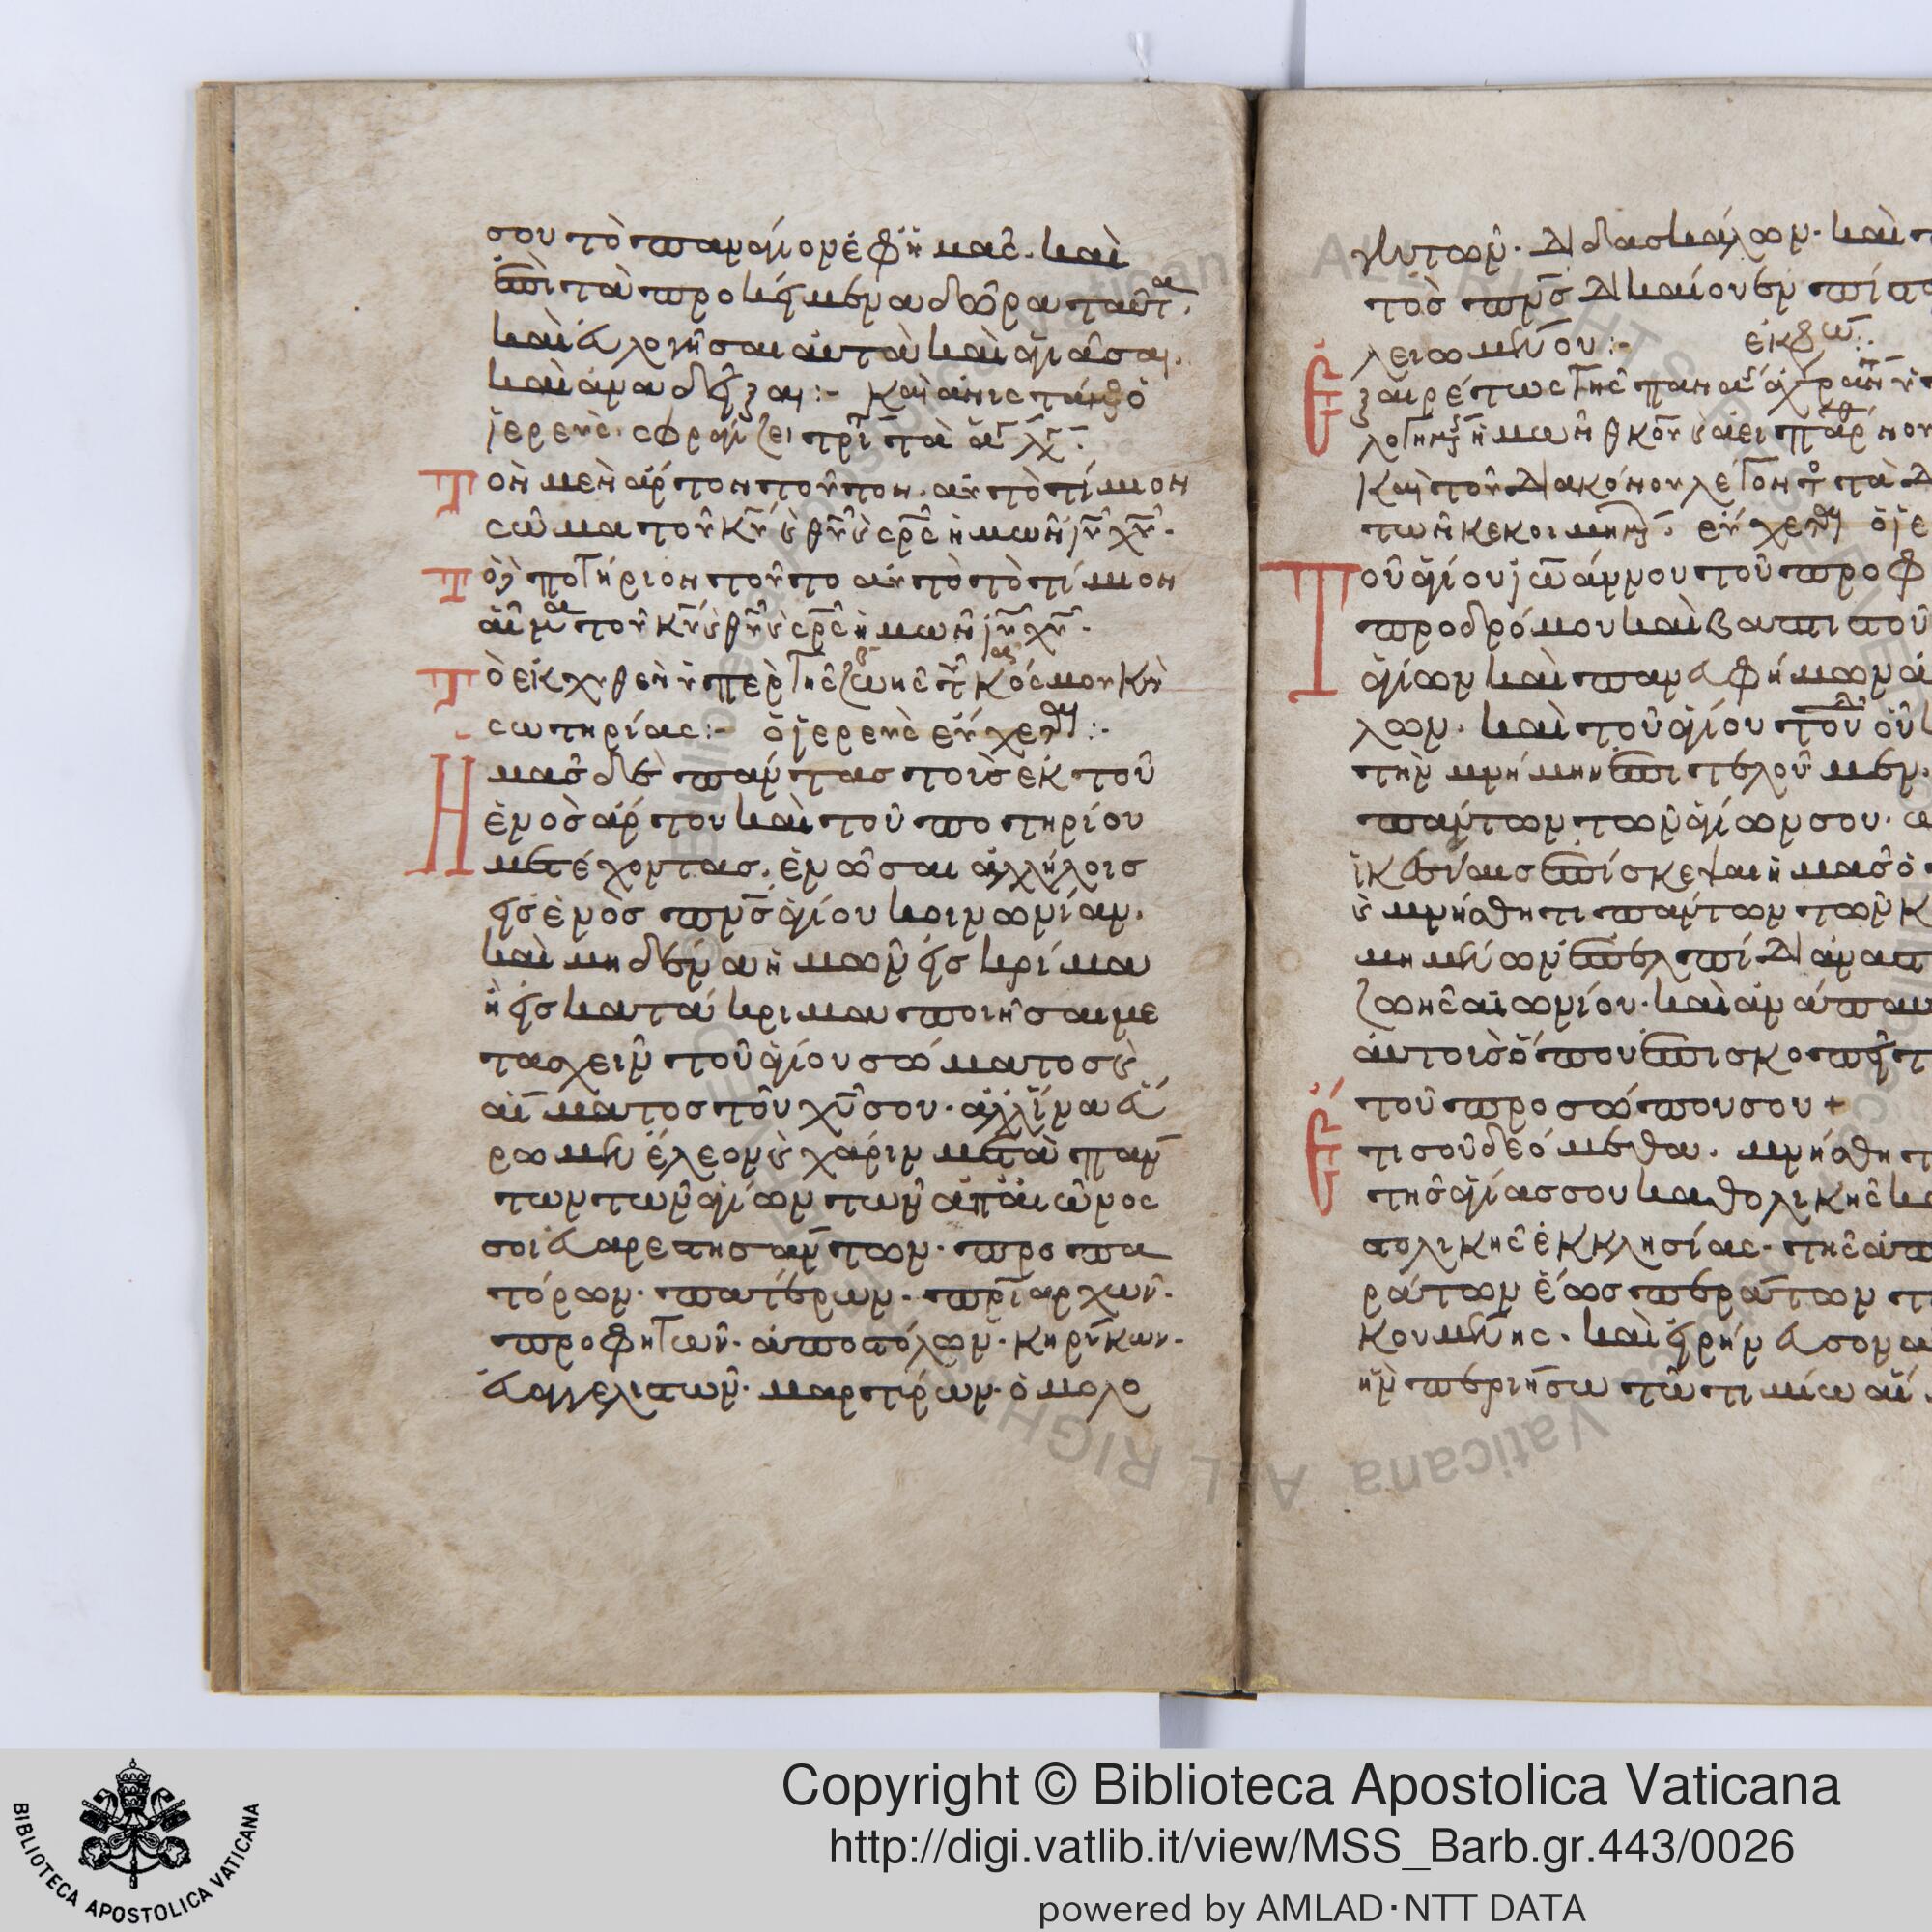 σου τὸ πανάγιον ἐφ ἡμᾶς. καὶ
ἐπὶ τὰ προκείμενα δῶρα ταῦτα.
καὶ εὐλογῆσαι αὐτὰ καὶ ἁγιᾶσαι.
καὶ ἀναδεῖξαι :- Καὶ ἀνιστάμενος ὁ
ἱερεὺς. σφραγίζει
Τὸν μὲν ἄρτον τοῦτον. αὐτὸ τὸ τίμιον
σῶμα τοῦ κυ ϗ θυ ϗ σρς ἡμῶν ιυ χυ.
Τὸ δὲ ποτήριον τοῦτο αὐτὸ τὸ τίμιον
αἷμα τοῦ κυ ϗ θυ ϗ σρς ἡμῶν ιυ χυ.
Τὸ ἐκχυθὲν ὑπὲρ τῆς ζωῆς τοῦ κόσμου καὶ
σωτηρίας :- ὁ ἱερεὺς εὔχεται :-
Ἡμᾶς δὲ πάντας τοὺς ἐκ τοῦ
ἑνὸς ἄρτου καὶ τοῦ ποτηρίου
μετέχοντας. ἑνῶσαι ἀλλήλοις
εἰς ἑνὸς πνς ἁγίου κοινωνίαν.
καὶ μηδένα ἡμῶν εἰς κρίμα
ἢ εἰς κατάκριμα ποιῆσαι με
τασχεῖν τοῦ ἁγίου σώματος ϗ
αἵματος τοῦ χυ σου. ἀλλ ἵνα εὕ
ρωμεν ἔλεον ϗ χάριν μετὰ πάν
των τῶν ἁγίων τῶν ἀπ αἰῶνος
σοι εὐαρεστησάντων. προπα
τόρων. πατέρων. πριαρχων.
προφητῶν. ἀποστόλων. κηρύκων.
εὐαγγελιστῶν. μαρτύρων. ὁμολο
γητῶν. διδασκάλων. καὶ
τὸς πνς δικαίου ἐν πίστ
λειωμένου :- ἐκφώ :.
Ἐξαιρέτως τῆς παναγ ἀχράν
λογημ ἡμῶν θκου ϗ ἀειπαρθένου
Καὶ τοῦ διακόνου λέγοντος τὰ δ
τῶν κεκοιμημ. εὔχεται ὁ ἱε
Τοῦ ἁγίου ἰωάννου τοῦ προφ
προδρόμου καὶ βαπτιστοῦ
ἁγίων καὶ πανευφήμων ἀ
λων. καὶ τοῦ ἁγίου τοῦδε οὗ κ
τὴν μνήμην ἐπιτελοῦμεν.
πάντων τῶν ἁγίων σου. ὧ
ἱκεσίαις ἐπίσκεψαι ἡμᾶς ὁ
ϗ μνήσθητι πάντων τῶν κ
μημένων ἐπ ἐλπίδι ἀναστ
ζωῆς αἰωνίου. καὶ ἀνάπαυ
αὐτοὺς ὅπου ἐπισκοπεῖ τ
τοῦ προσώπου σου +
Ἔτι σοῦ δεόμεθα. μνήσθητ
τῆς ἁγίας σου καθολικῆς κ
στολικῆς ἐκκλησίας. τῆς ἀπ
ράτων ἕως περάτων τ
κουμένης. καὶ εἰρήνευσον α
ἣν περιποιήσω τῶ τιμίω αἵ
Copyright © Biblioteca Apostolica Vaticana
http://digi.vatlib.it/view/MSS_Barb.gr.443/0026
powered by AMLAD·NTT DATA
BIBLIOTECA APOSTOLICA VATICANA